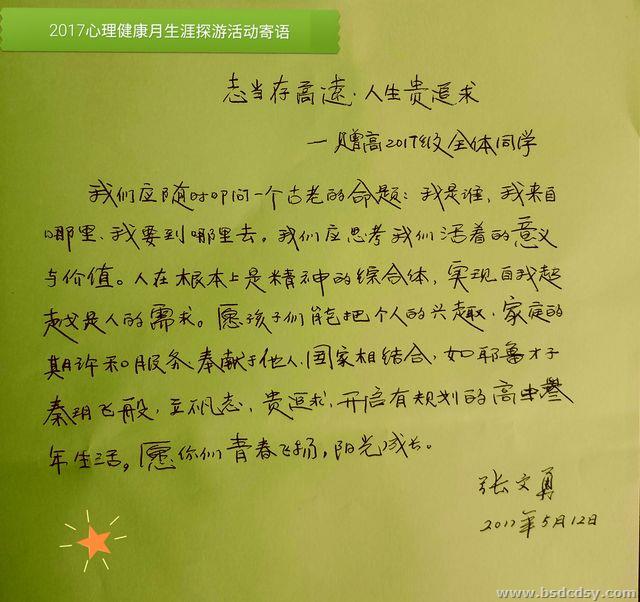 2017心理健康月生涯探游活动寄语
志当存高远·人生贵追求
—赠高2017级全体同学
我们应随时叩问一个古老的命题：我是谁，我来自
哪里、我要到哪里去。我们应思考我们活着的意义
与价值。人在根本上是精神的综合体，实现自我超
越是人的需求。愿孩子们能把个人的兴趣、家庭的
期许和服务、奉献于他人、国家相结合，如耶鲁才子
秦玥飞般，立凡志，贵追求，开启有规划的高中叁
年生活，愿你们青春飞扬，阳光成长。
张文勇
2017年5月12日
www.bsdcdsy.com